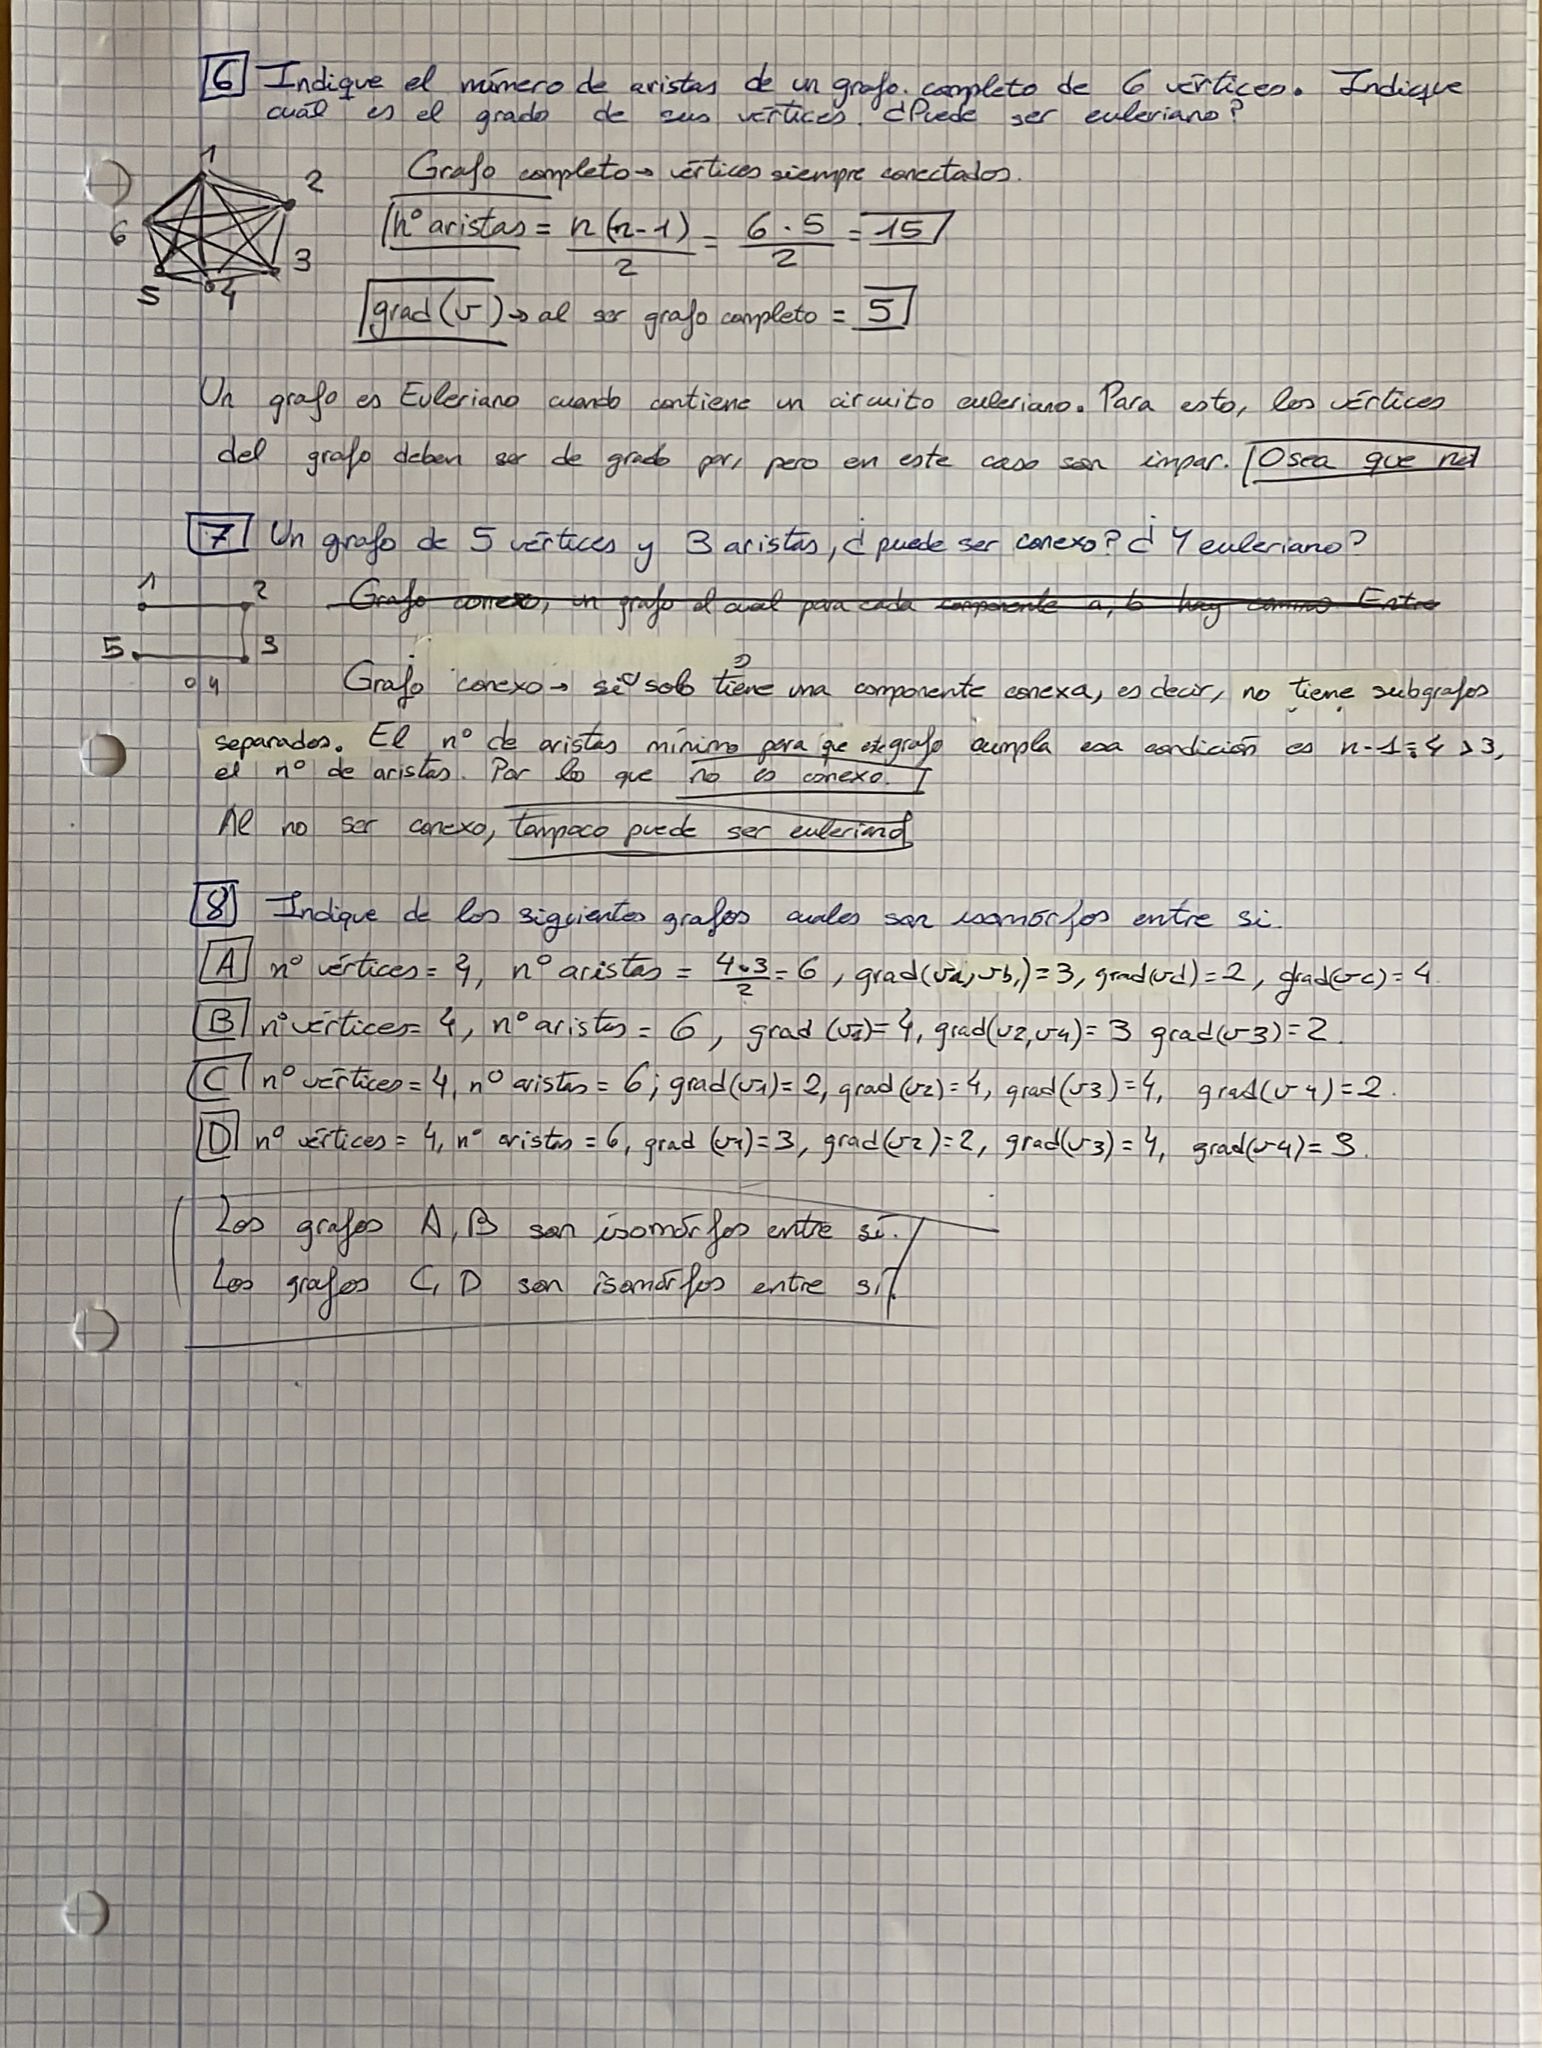 6 Indique el número de aristas de un grafo completo de 6 vértices. Indique
cuál es el grado de sus vértices. ¿Puede ser euleriano?
1
2
6
3
5
4
Grafo completo → vértices siempre conectados.
nº aristas = n(n-1)/2 = 6·5/2 = 15
grad(v) → al ser grafo completo = 5
Un grafo es Euleriano cuando contiene un circuito euleriano. Para esto, los vértices
del grafo deben ser de grado par, pero en este caso son impar. Osea que no
7 Un grafo de 5 vértices y 3 aristas, ¿puede ser conexo? ¿Y euleriano?
1
2
5
3
4
Grafo conexo, un grafo el cual para cada componente a, b hay camino. Entre
Grafo conexo → si solo tiene una componente conexa, es decir, no tiene subgrafos
separados. El nº de aristas mínimo para que este grafo cumpla esa condición es n-1=4 > 3,
el nº de aristas. Por lo que no es conexo.
Al no ser conexo, tampoco puede ser euleriano
8 Indique de los siguientes grafos cuales son isomórfos entre si.
A nº vértices = 4, nº aristas = 4·3/2 = 6, grad(va, vb,) = 3, grad(vd) = 2, grad(vc) = 4
B nº vértices = 4, nº aristas = 6, grad(v1) = 4, grad(v2, v4) = 3 grad(v3) = 2
C nº vértices = 4, nº aristas = 6; grad(v1) = 2, grad(v2) = 4, grad(v3) = 4, grad(v4) = 2.
D nº vértices = 4, nº aristas = 6, grad(v1) = 3, grad(v2) = 2, grad(v3) = 4, grad(v4) = 3.
Los grafos A, B son isomórfos entre sí.
Los grafos C, D son isomórfos entre sí.